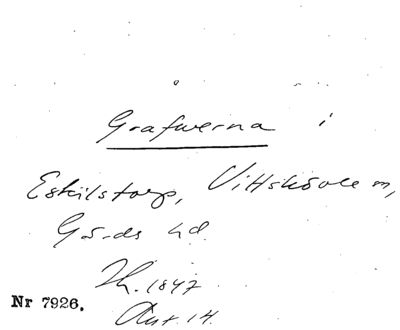 Grafwerna i
Eskilstorp, Vittskövle m,
Gärds hd.
Th. 1847
Nr 7926.
Ant. 14.